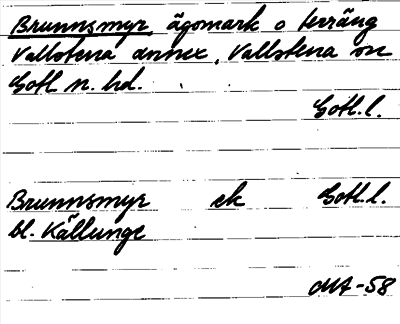 Brunnsmyr, ägomark o terräng
Vallstena annex, Vallstena sn
Gotl. n. hd.
Gotl. l.
Brunnsmyr ek Gotl. l.
bl. Källunge
MA-58